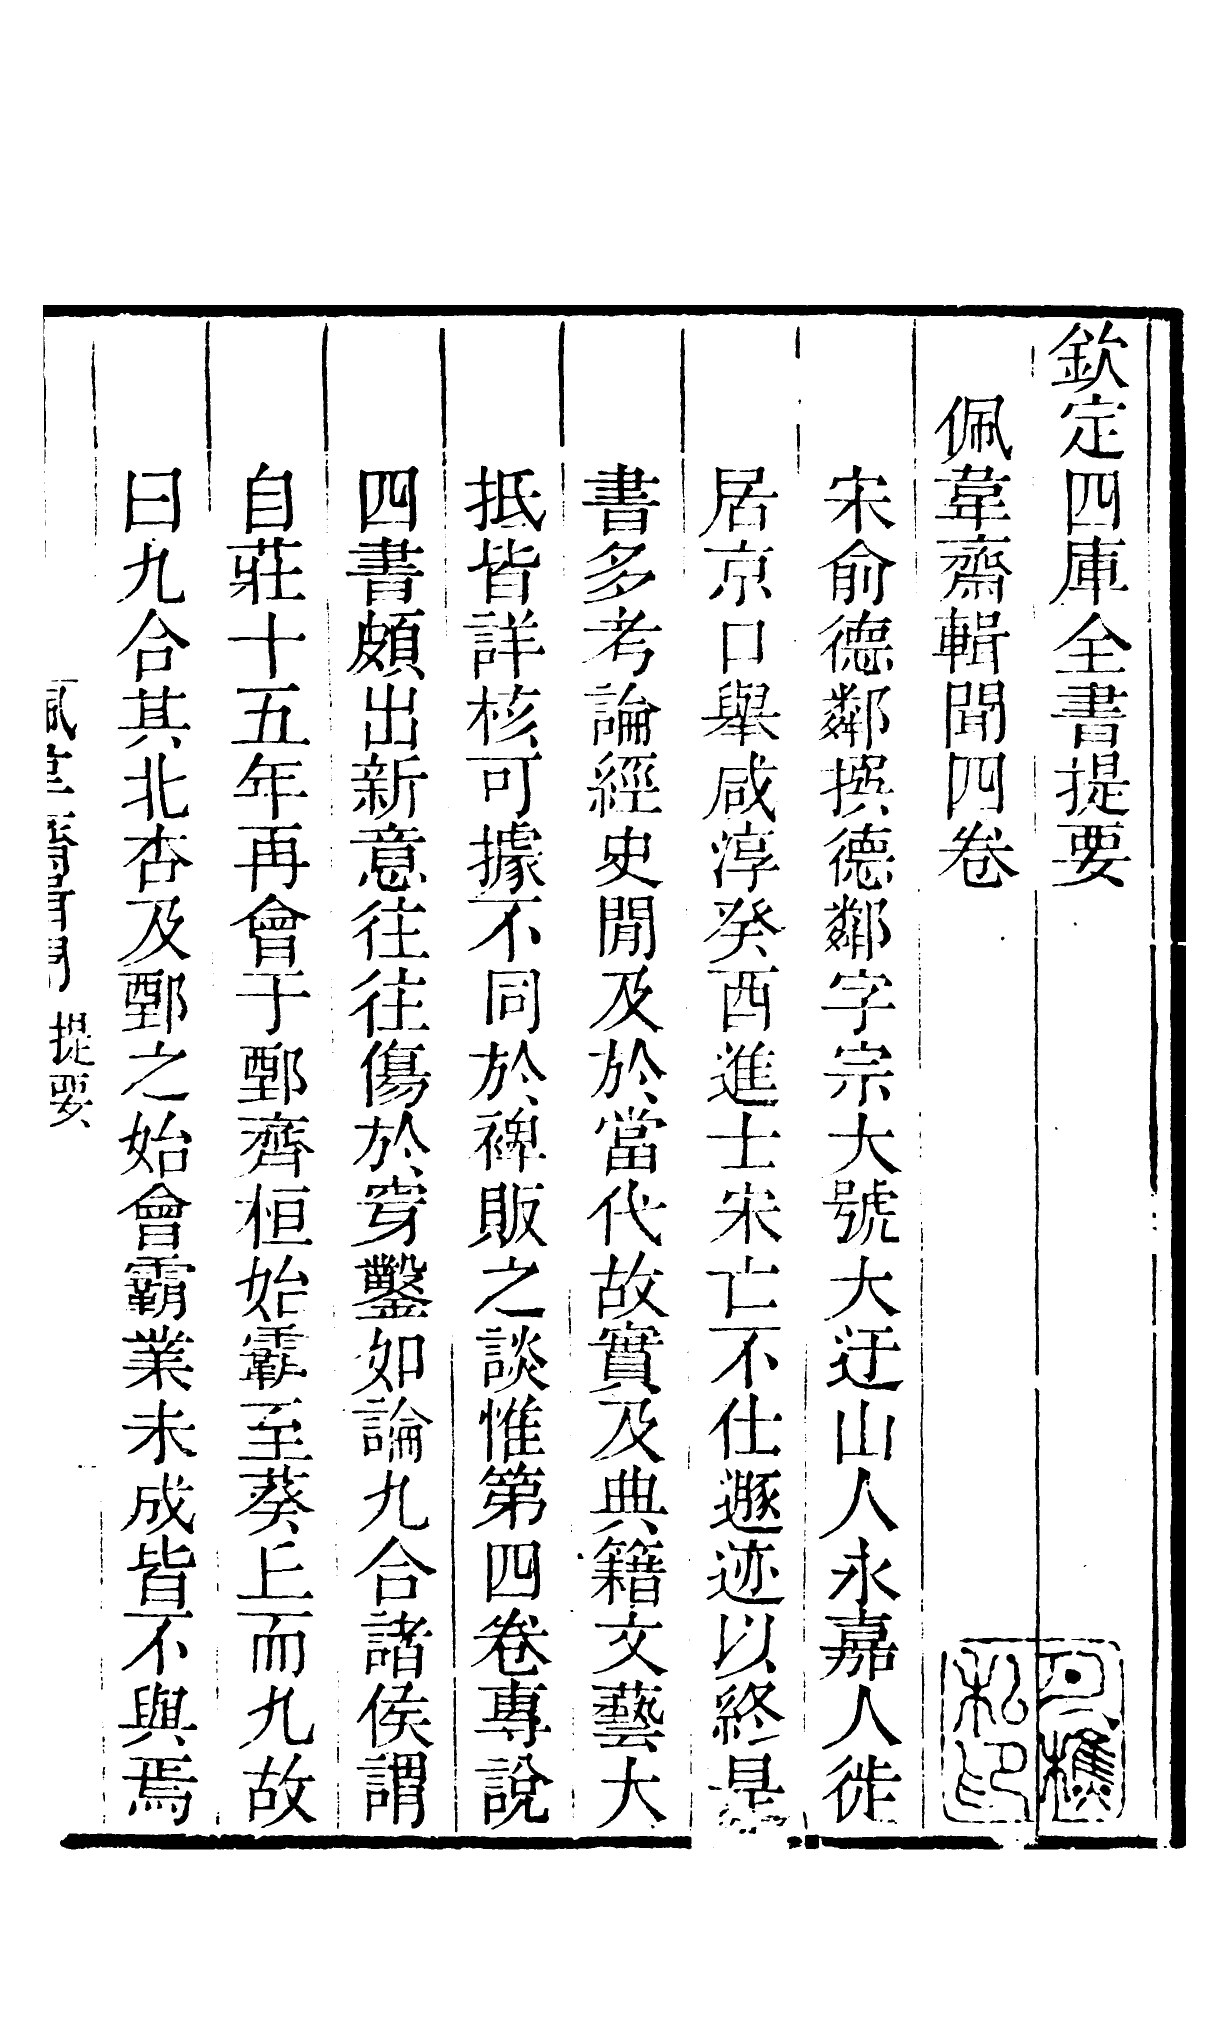 欽定四庫全書提要
佩韋齋輯聞四卷
宋俞德鄰撰德鄰字宗大號大迂山人永嘉人徙
居京口舉咸淳癸酉進士宋亡不仕遯迹以終是
書多考論經史閒及於當代故實及典籍文藝大
抵皆詳核可據不同於裨販之談惟第四卷專說
四書頗出新意往往傷於穿鑿如論九合諸侯謂
自莊十五年再會于鄄齊桓始霸至葵丄而九故
曰九合其北杏及鄄之始會霸業未成皆不與焉
提要